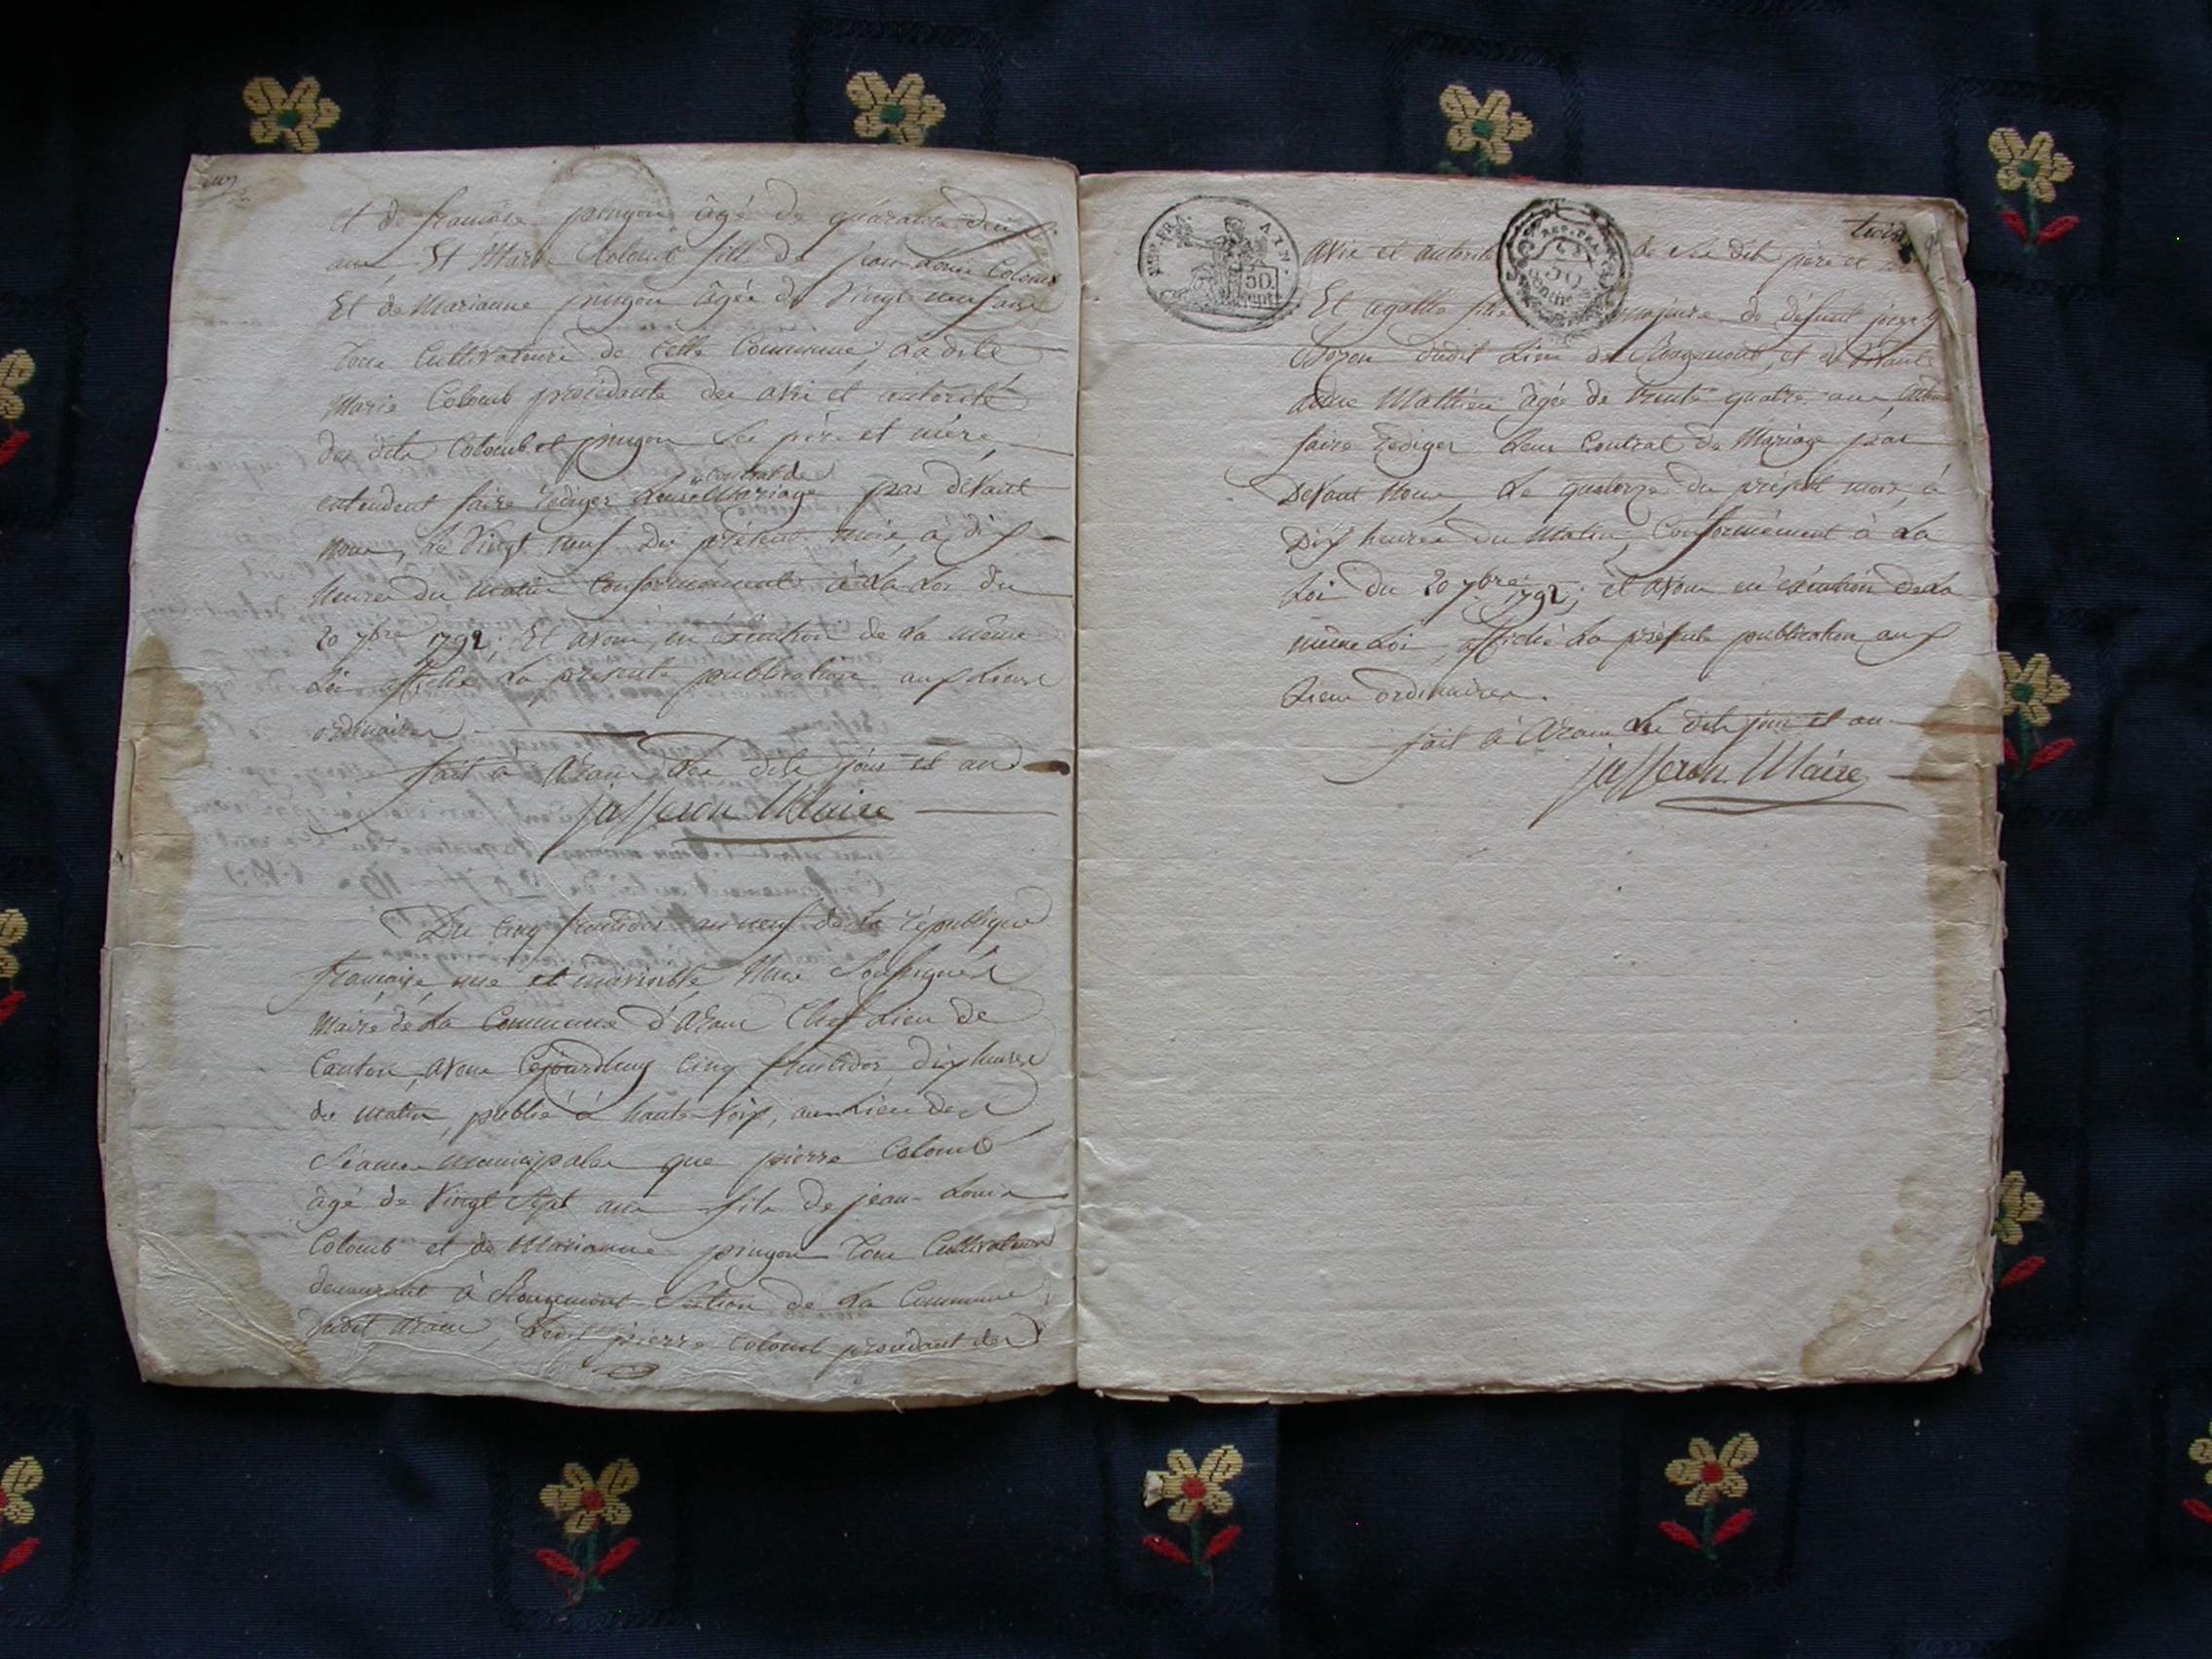 et de françoise pingon âgé de quarante deux
ans, Et Marie Colomb fille de jean Louis Colomb
Et de Marianne pingon âgée de Vingt neuf ans
Tous Cultivateurs de cette Commune, La dite
Marie Colomb procédante des avis et autorité
des dits Colomb et pingon Ses père et mère
entendent faire rédiger Leur contrat de Mariage par devant
Nous, Le Vingt neuf du présent mois, à dix
heures du matin Conformément à La Loi du
20 7bre 1792; Et avons, en exécution de La même
Loi affiché La présente publication aux Lieux
ordinaires
fait à Aranc Les dits jour et an
jasseron Maire
Du cinq fructidor an neuf de la République
française une et indivisible Nous Soussignés
Maire de La Commune d'Aranc Chef Lieu de
Canton, avons Cejourdhuy cinq fructidor dix heures
du matin, publié à haute Voix, au Lieu des
Séances Municipales que pierre Colomb
âgé de Vingt Sept ans fils de jean Louis
Colomb et de Marianne pingon Tous Cultivateurs
demeurant à Rougemont Section de La Commune
dudit Aranc, Ledit pierre Colomb procédant des
trois
REP. FRA. AIN.
50. cent.
REP. FRA.
50 centimes
avis et autorité de Ses dits père et
Et agathe fille majeure de défunt pierre
dudit Lieu de Rougemont, et de
Mathieu âgée de trente quatre ans
faire rediger Leur Contrat de Mariage par
Devant Nous, Le quatorze du présent mois, à
Dix heures du Matin, Conformément à La
Loi du 20 7bre 1792; et avons en exécution de La
même Loi, affiché La présente publication aux
Lieux ordinaires.
fait à Aranc Les dits jour et an
jasseron Maire